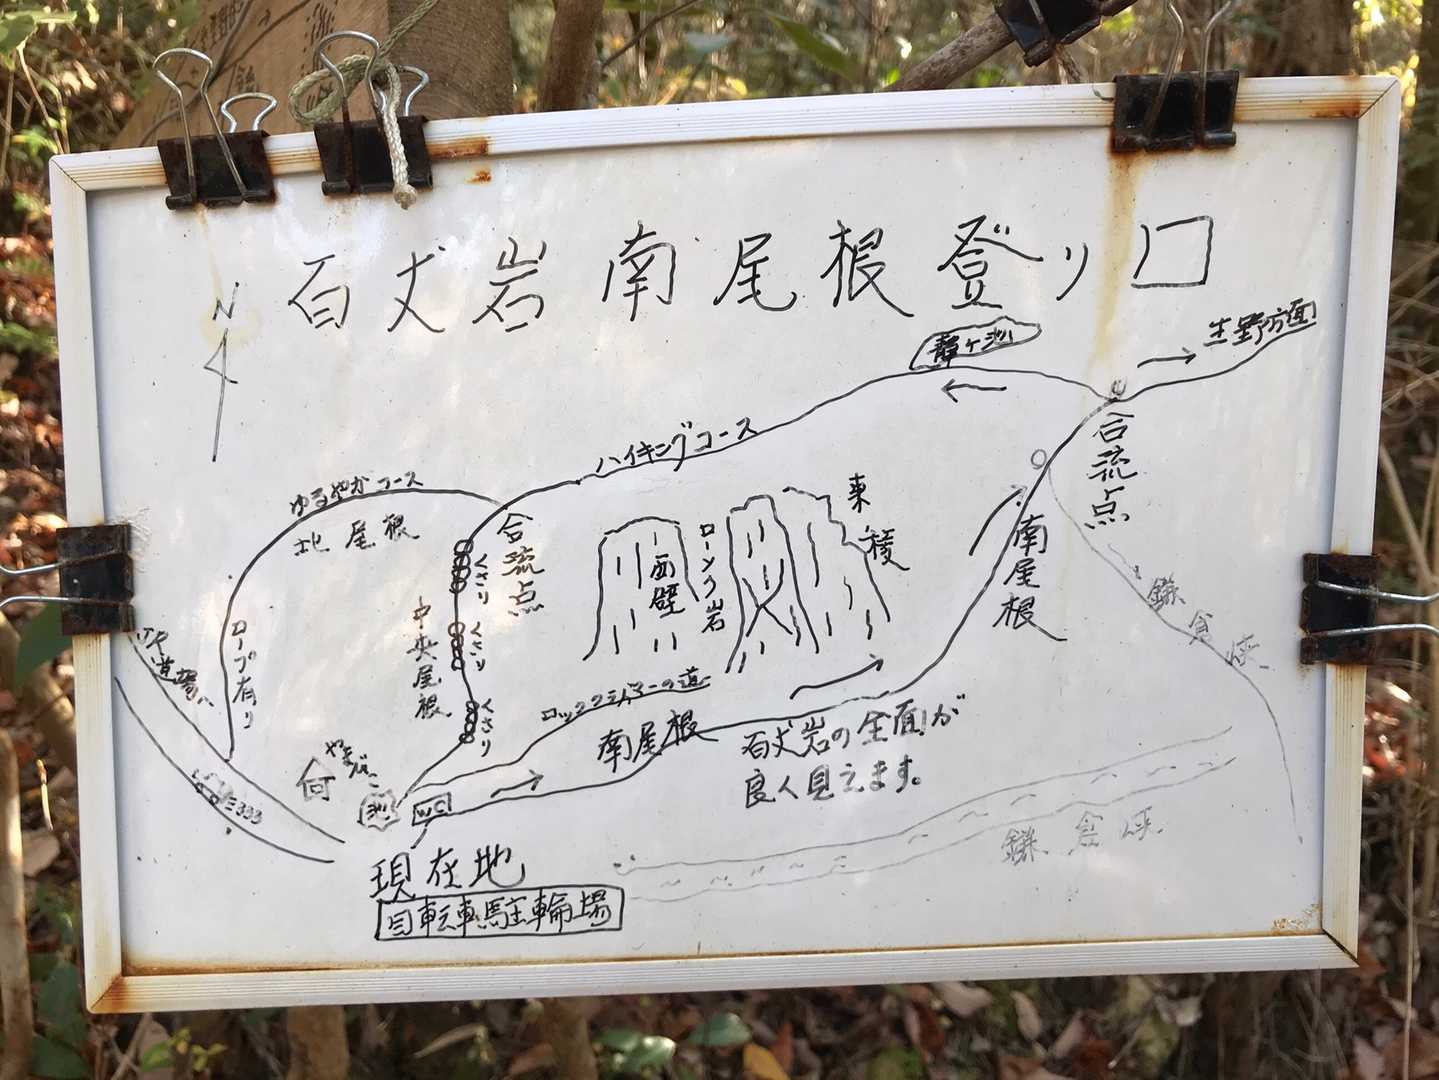 百丈岩南尾根登り口
N
静ヶ池
生野方面
合流点
ハイキングコース
ゆるやかコース
北尾根
合流点
くさり
くさり
くさり
中央尾根
ロープ有り
西壁
ローソク岩
東稜
南尾根
鎌倉峡
ロッククライマーの道
南尾根
百丈岩の全面が
良く見えます。
やまびこ
池
WC
鎌倉峡
現在地
自転車駐輪場